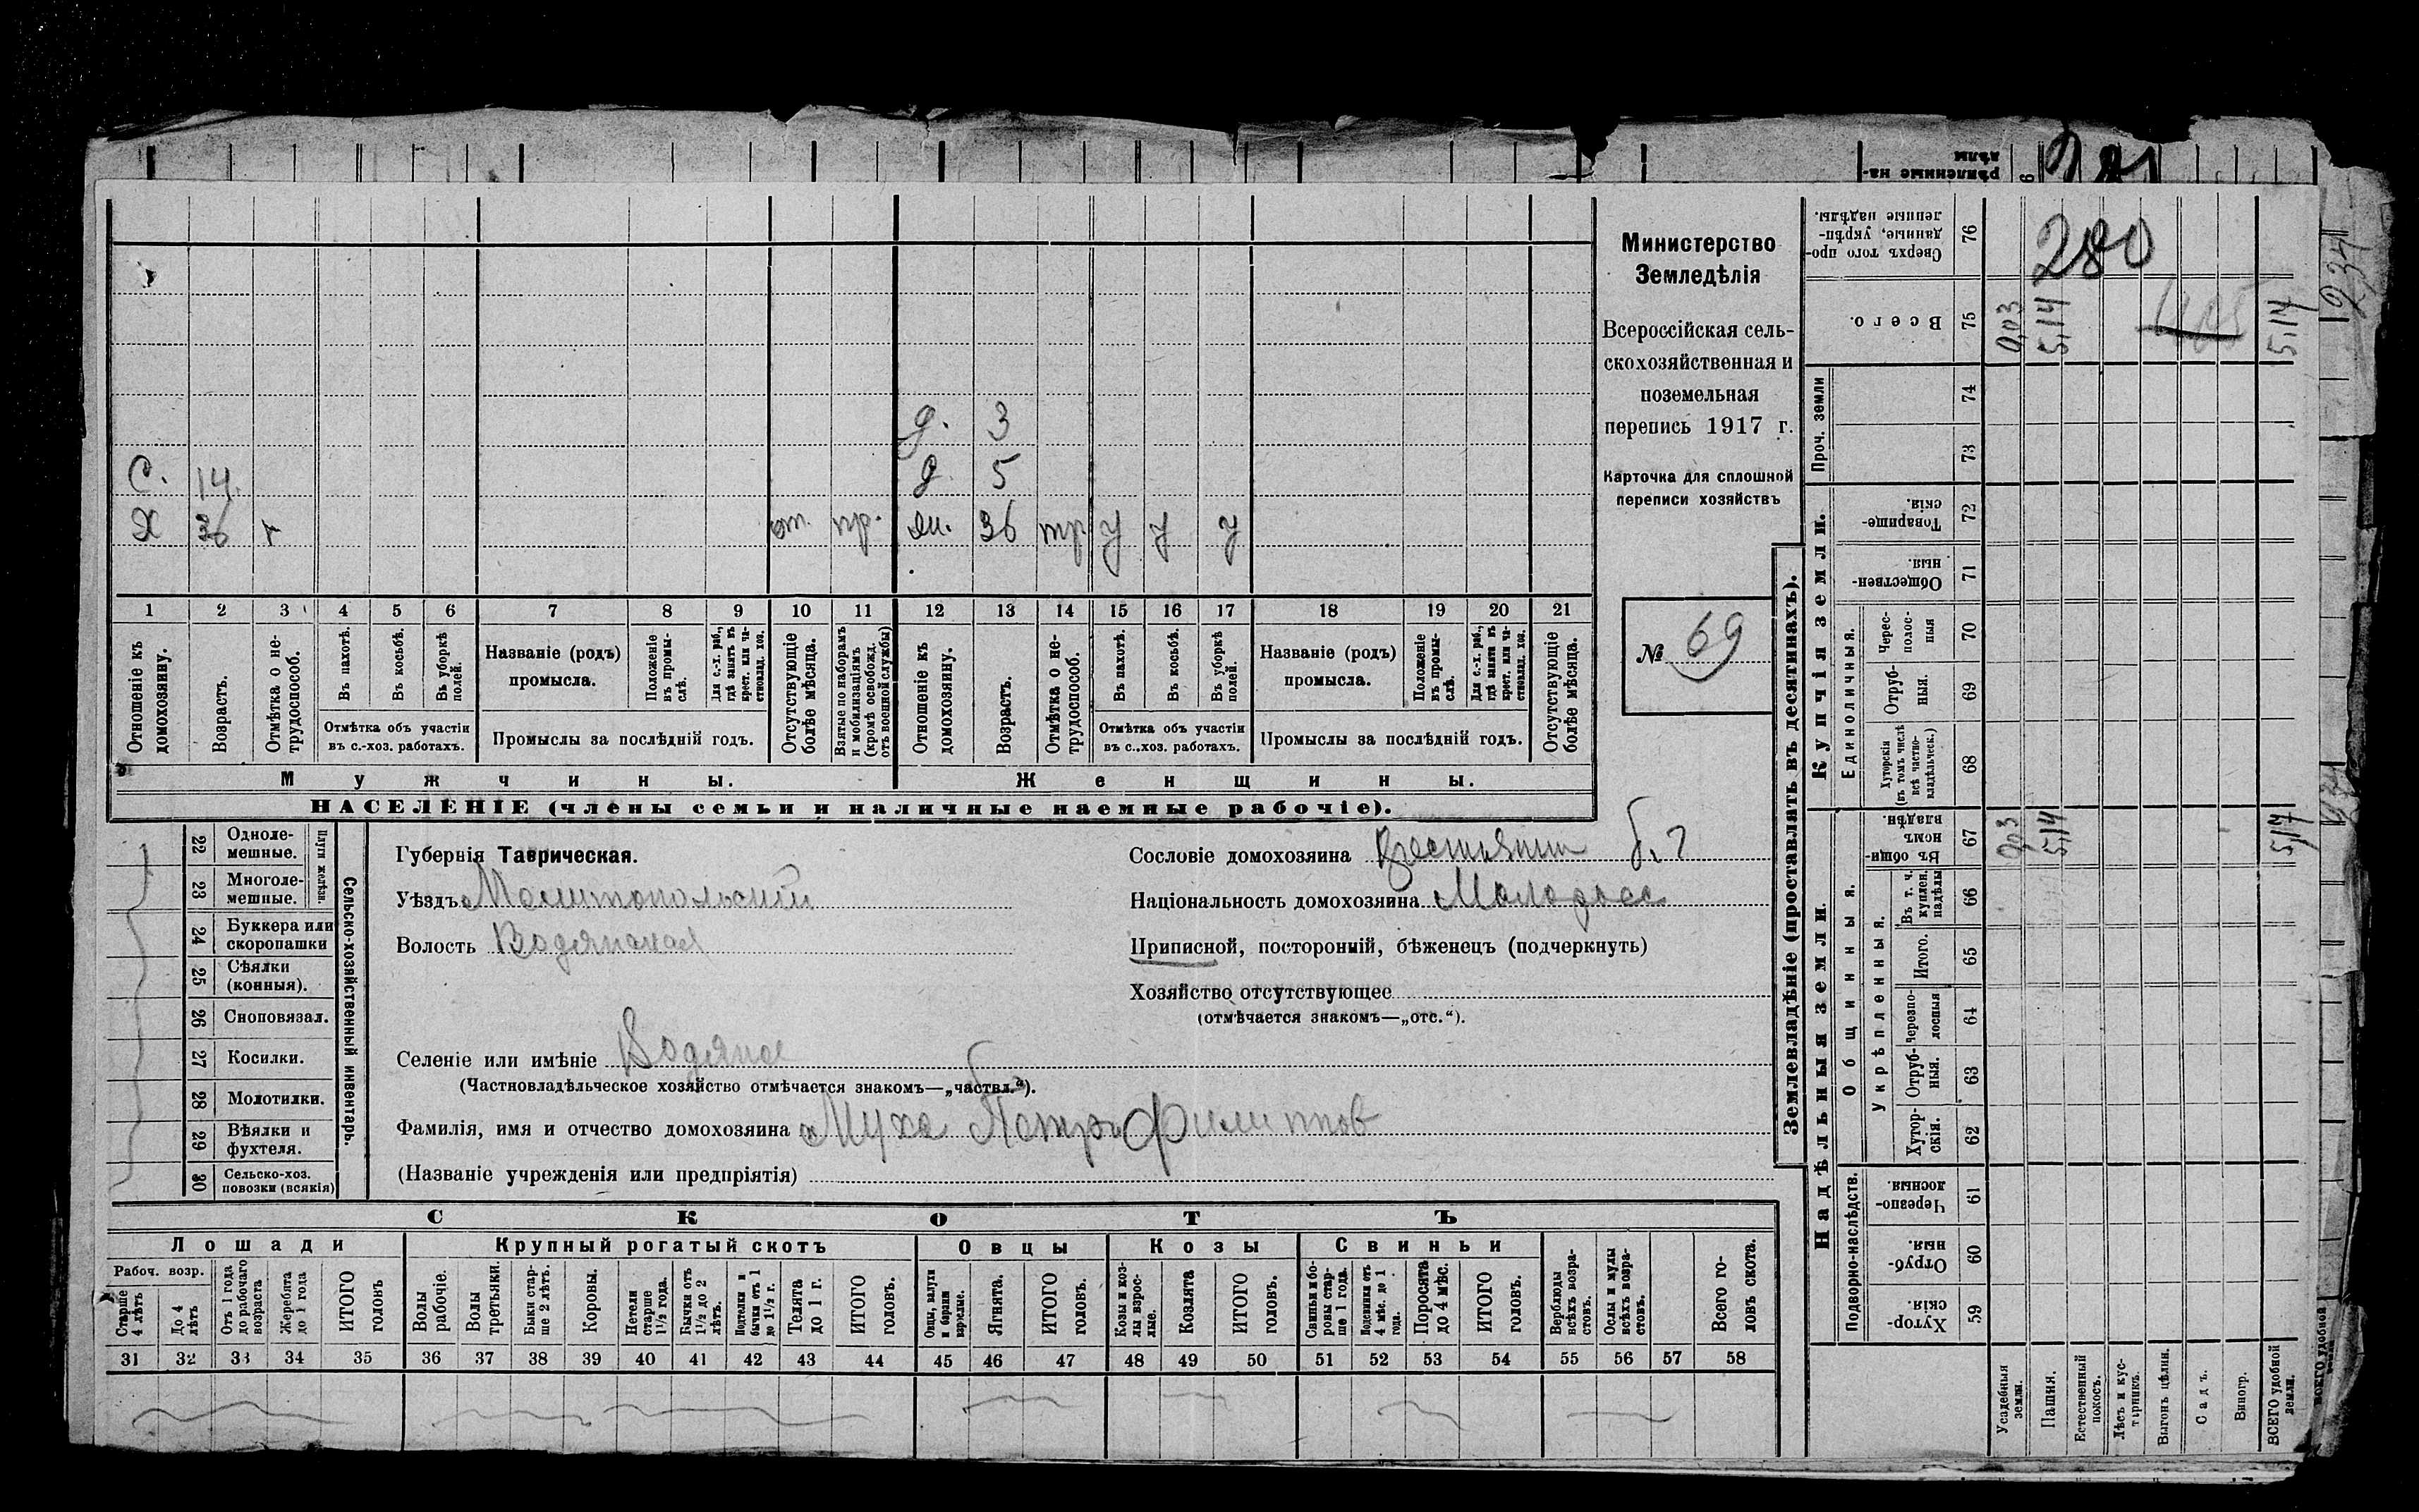 рѣпленные на-
дѣлы
Министерство
Земледѣлія
Всероссійская сель-
скохозяйственная и
поземельная
перепись 1917 г.
Карточка для сплошной
переписи хозяйствъ
№ 69
д. 3
С. 14. д. 5
Х 36 т от. пр. жн. 36 тр у у у
1 2 3 4 5 6 7 8 9 10 11 12 13 14 15 16 17 18 19 20 21
Отношеніе къ домохозяину.
Возрастъ.
Отмѣтка о не-трудоспособ.
Въ пахотѣ.
Въ косьбѣ.
Въ уборкѣ полей.
Отмѣтка объ участіи
въ с.-хоз. работахъ.
Названіе (родъ)
промысла.
Положеніе въ промы-слѣ.
Для с.-х. раб., гдѣ занятъ въ крест. или ча-стновлад. хоз.
Промыслы за послѣдній годъ.
Отсутствующіе болѣе мѣсяца.
Взятые по наборамъ и мобилизаціямъ (кромѣ освобожд. отъ военной службы)
Отношеніе къ домохозяину.
Возрастъ.
Отмѣтка о не-трудоспособ.
Въ пахотѣ.
Въ косьбѣ.
Въ уборкѣ полей.
Отмѣтка объ участіи
въ с.-хоз. работахъ.
Названіе (родъ)
промысла.
Положеніе въ промы-слѣ.
Для с.-х. раб., гдѣ занята въ крест. или ча-стновлад. хоз.
Промыслы за послѣдній годъ.
Отсутствующіе болѣе мѣсяца.
Мужчины. Женщины.
НАСЕЛЕНІЕ (члены семьи и наличные наемные рабочіе).
22 Одноле-мешные.
23 Многоле-мешные.
Плуги желѣзн.
24 Буккера или скоропашки
25 Сѣялки (конныя).
26 Сноповязал.
27 Косилки.
28 Молотилки.
29 Вѣялки и фухтеля.
30 Сельско-хоз. повозки (всякія)
Сельско-хозяйственный инвентарь.
Губернія Таврическая.
Уѣздъ Мелитопольскій
Волость Водянская
Селеніе или имѣніе Водяное
(Частновладѣльческое хозяйство отмѣчается знакомъ—„частвл.“).
Фамилія, имя и отчество домохозяина Муха Петръ Филиппов
(Названіе учрежденія или предпріятія)
Сословіе домохозяина крестьянин
Національность домохозяина Малоросс
Приписной, посторонній, бѣженецъ (подчеркнуть)
Хозяйство отсутствующее
(отмѣчается знакомъ—„отс.“).
СКОТЪ
Лошади Крупный рогатый скотъ Овцы Козы Свиньи
Рабоч. возр.
Старше 4 лѣтъ
До 4 лѣтъ
Отъ 1 года до рабочаго возраста
Жеребята до 1 года
ИТОГО головъ
Волы рабочіе.
Волы третьяки.
Быки стар-ше 2 лѣтъ.
Коровы.
Нетели старше 1½ года.
Бычки отъ 1½ до 2 лѣтъ.
Подтелки и бычки отъ 1 до 1½ г.
Телята до 1 г.
ИТОГО головъ.
Овцы, валухи и бараны взрослые.
Ягнята.
ИТОГО головъ.
Козы и коз-лы взрос-лые.
Козлята
ИТОГО головъ.
Свиньи и бо-ровы стар-ше 1 года.
Подсвинки отъ 4 мѣс. до 1 года.
Поросята до 4 мѣс.
ИТОГО головъ.
Верблюды всѣхъ возра-стовъ.
Ослы и мулы всѣхъ возра-стовъ.
Всего го-ловъ скота.
31 32 33 34 35 36 37 38 39 40 41 42 43 44 45 46 47 48 49 50 51 52 53 54 55 56 57 58
Землевладѣніе (проставлять въ десятинахъ).
Надѣльныя земли. Купчія земли. Проч. земли
Подворно-наслѣдств.
Общинныя.
Укрѣпленныя.
Единоличныя.
Хутор-скія. 59
Отруб-ныя. 60
Черезпо-лосныя 61
Хутор-скія. 62
Отруб-ныя. 63
Черезпо-лосныя 64
Итого. 65
Въ т. ч. куплен. надѣлы 66
Въ общи-номъ владѣн. 67 0,03 5,14 5,14
Хуторскія (въ томъ числѣ всѣ частно-владѣльческ.) 68
Отруб-ныя. 69
Черес-полос-ныя 70
Обществен-ныя. 71
Товарище-скія. 72
73
74
Всего. 75 0,03 5,14 5,14
Сверхъ того про-данные, укрѣп-ленные надѣлы. 76
280
234
Усадебныя земли.
Пашня.
Естественный покосъ.
Лѣсъ и кус-тарникъ.
Выгонъ цѣлин.
Садъ.
Виногр.
ВСЕГО удобной земли.
ВСЕГО удобной